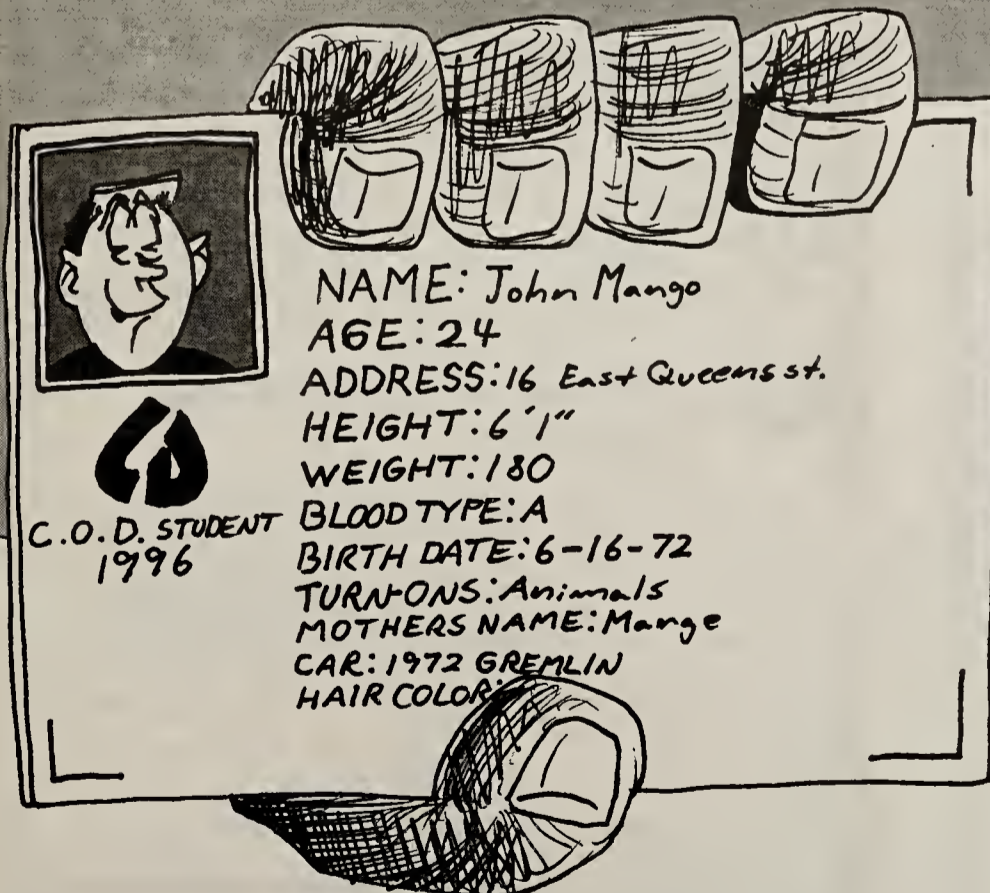 NAME: John Mango
AGE: 24
ADDRESS: 16 East Queens st.
HEIGHT: 6'1"
WEIGHT: 180
BLOOD TYPE: A
BIRTH DATE: 6-16-72
TURN-ONS: Animals
MOTHERS NAME: Marge
CAR: 1972 GREMLIN
HAIR COLOR:
C.O.D. STUDENT
1996